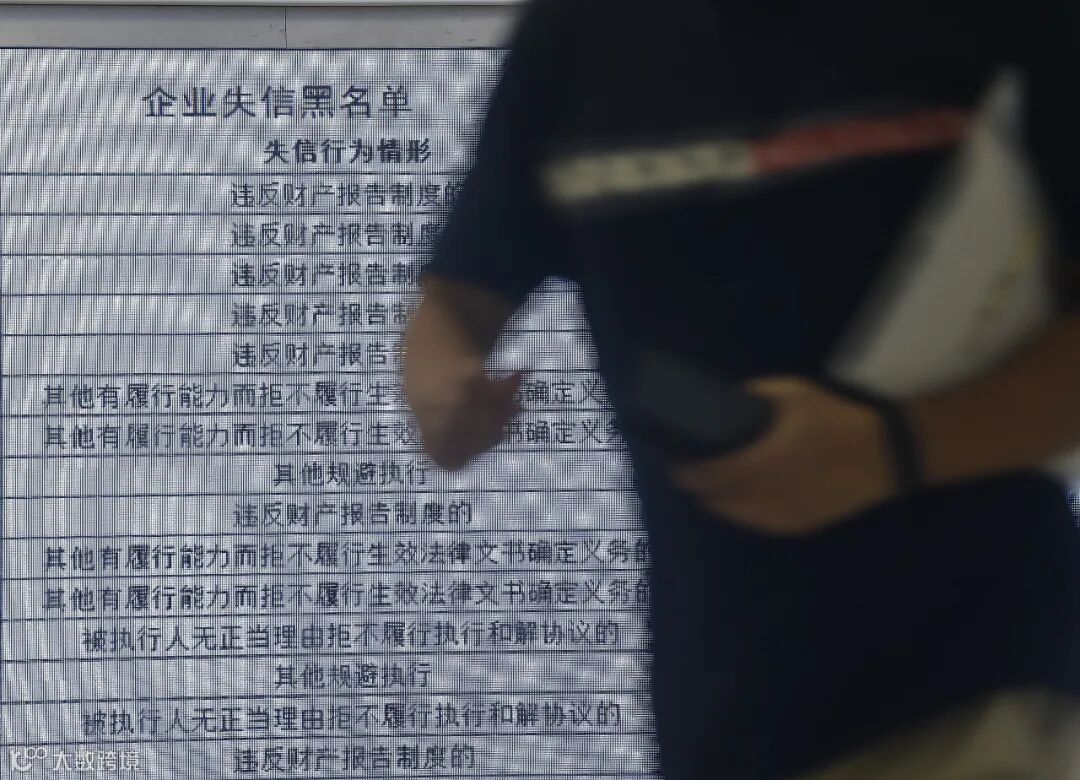 企业失信黑名单
失信行为情形
违反财产报告制度的
违反财产报告制度
违反财产报告制
违反财产报告制
违反财产报告
其他有履行能力而拒不履行生 书确定义
其他有履行能力而拒不履行生效 书确定义务
其他规避执行
违反财产报告制度的
其他有履行能力而拒不履行生效法律文书确定义务的
其他有履行能力而拒不履行生效法律文书确定义务的
被执行人无正当理由拒不履行执行和解协议的
其他规避执行
被执行人无正当理由拒不履行执行和解协议的
违反财产报告制度的
大数跨境